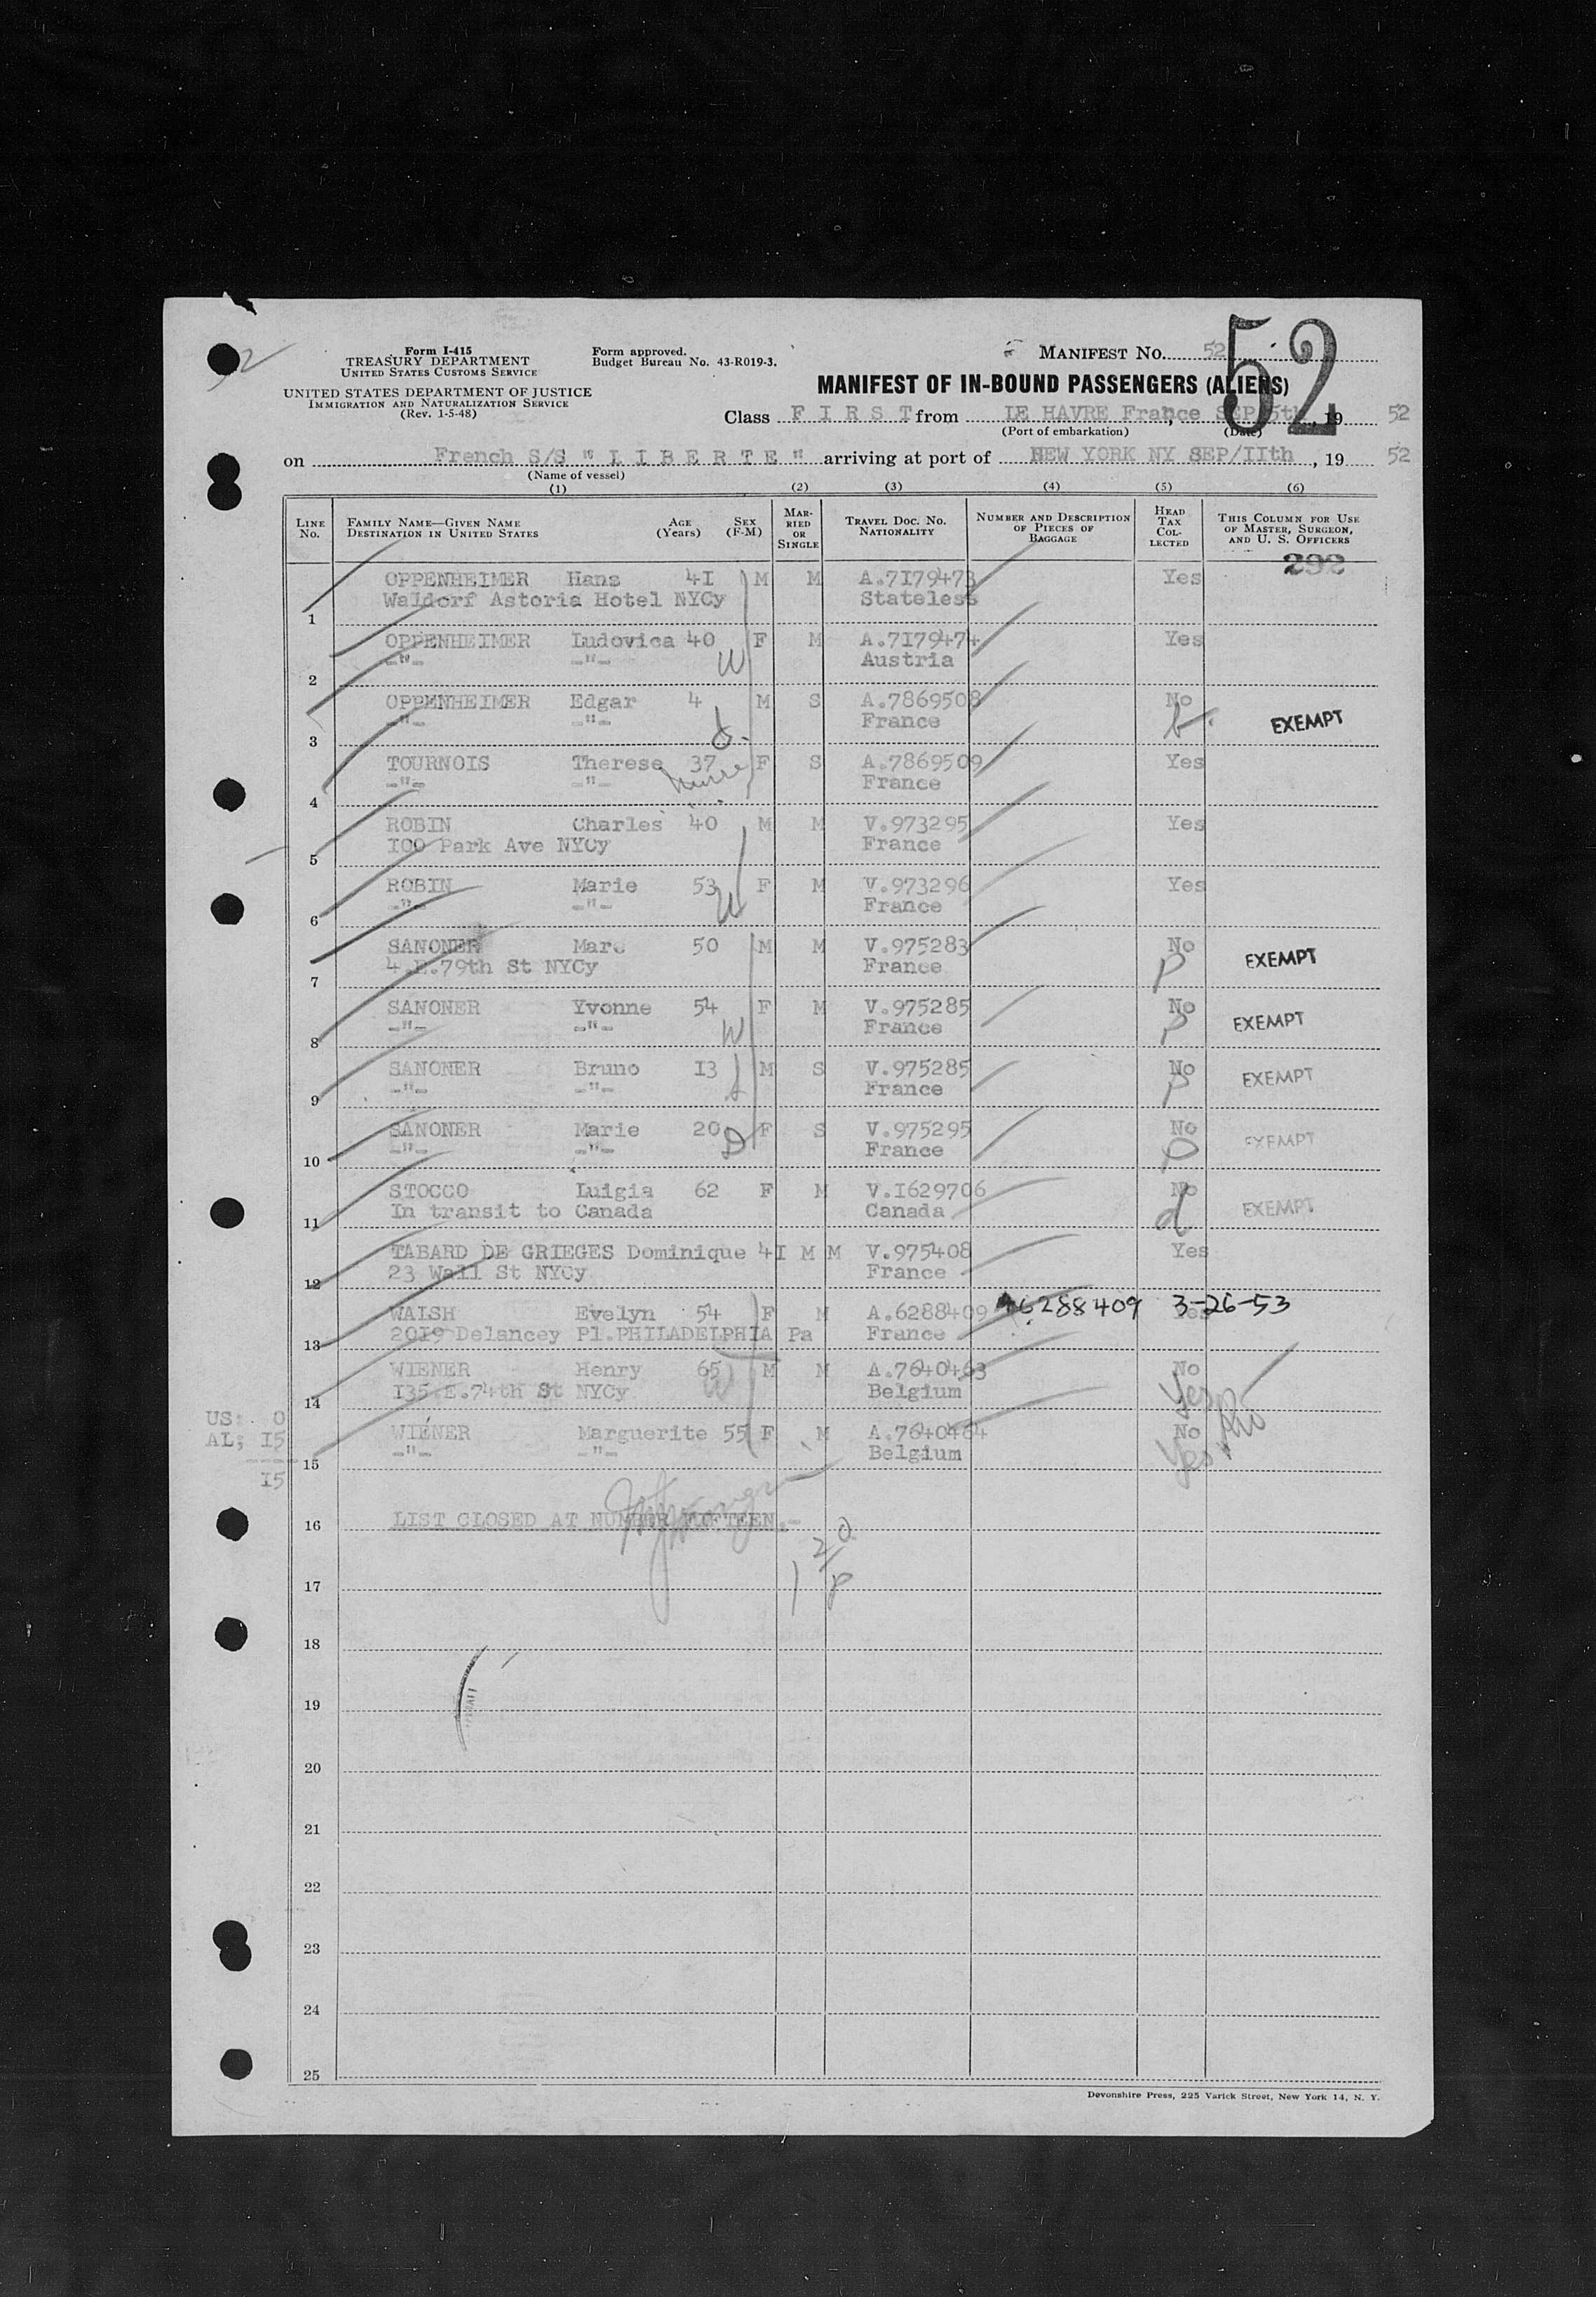 52
Form I-415
TREASURY DEPARTMENT
UNITED STATES CUSTOMS SERVICE
Form approved.
Budget Bureau No. 43-R019-3.
MANIFEST NO. 52
52
UNITED STATES DEPARTMENT OF JUSTICE
IMMIGRATION AND NATURALIZATION SERVICE
(Rev. 1-5-48)
MANIFEST OF IN-BOUND PASSENGERS (ALIENS)
Class F I R S T from LE HAVRE France, SEP 5th, 19 52
(Port of embarkation) (Date)
on French S/S " L I B E R T E " arriving at port of NEW YORK NY SEP/IIth, 19 52
(Name of vessel)
(1) (2) (3) (4) (5) (6)
LINE NO. FAMILY NAME—GIVEN NAME DESTINATION IN UNITED STATES AGE (Years) SEX (F-M) MARRIED OR SINGLE TRAVEL DOC. NO. NATIONALITY NUMBER AND DESCRIPTION OF PIECES OF BAGGAGE HEAD TAX COLLECTED THIS COLUMN FOR USE OF MASTER, SURGEON, AND U. S. OFFICERS
292
OPPENHEIMER Hans 4I M M A.7I79473 Yes
1 Waldorf Astoria Hotel NYCy Stateless
OPPENHEIMER Ludovica 40 F M A.7I79474 Yes
2 -"- -"- W Austria
OPPENHEIMER Edgar 4 M S A.7869508 No
3 -"- -"- France EXEMPT
TOURNOIS Therese 37 F S A.7869509 Yes
4 -"- -"- nurse France
ROBIN Charles 40 M M V.973295 Yes
5 I00 Park Ave NYCy France
ROBIN Marie 53 F M V.973296 Yes
6 -"- -"- W France
SANONER Marc 50 M M V.975283 No
7 4.E.79th St NYCy France P EXEMPT
SANONER Yvonne 54 F M V.975285 No
8 -"- -"- W France P EXEMPT
SANONER Bruno I3 M S V.975285 No
9 -"- -"- France P EXEMPT
SANONER Marie 20 F S V.975295 No
10 -"- -"- D France P EXEMPT
STOCCO Luigia 62 F M V.I629706 No
11 In transit to Canada Canada d EXEMPT
TABARD DE GRIEGES Dominique 4I M M V.975408 Yes
12 23 Wall St NYCy France
WALSH Evelyn 54 F M A.6288409 A6288409 Yes 3-26-53
13 20I9 Delancey Pl.PHILADELPHIA Pa France
WIENER Henry 65 M M A.7640463 No
14 I35.E.74th St NYCy W Belgium Yes
US: 0
AL; I5
WIENER Marguerite 55 F M A.7640464 No
15 -"- -"- Belgium Yes
I5
16 LIST CLOSED AT NUMBER FIFTEEN.-
17
18
19
20
21
22
23
24
25
Devonshire Press, 225 Varick Street, New York 14, N. Y.